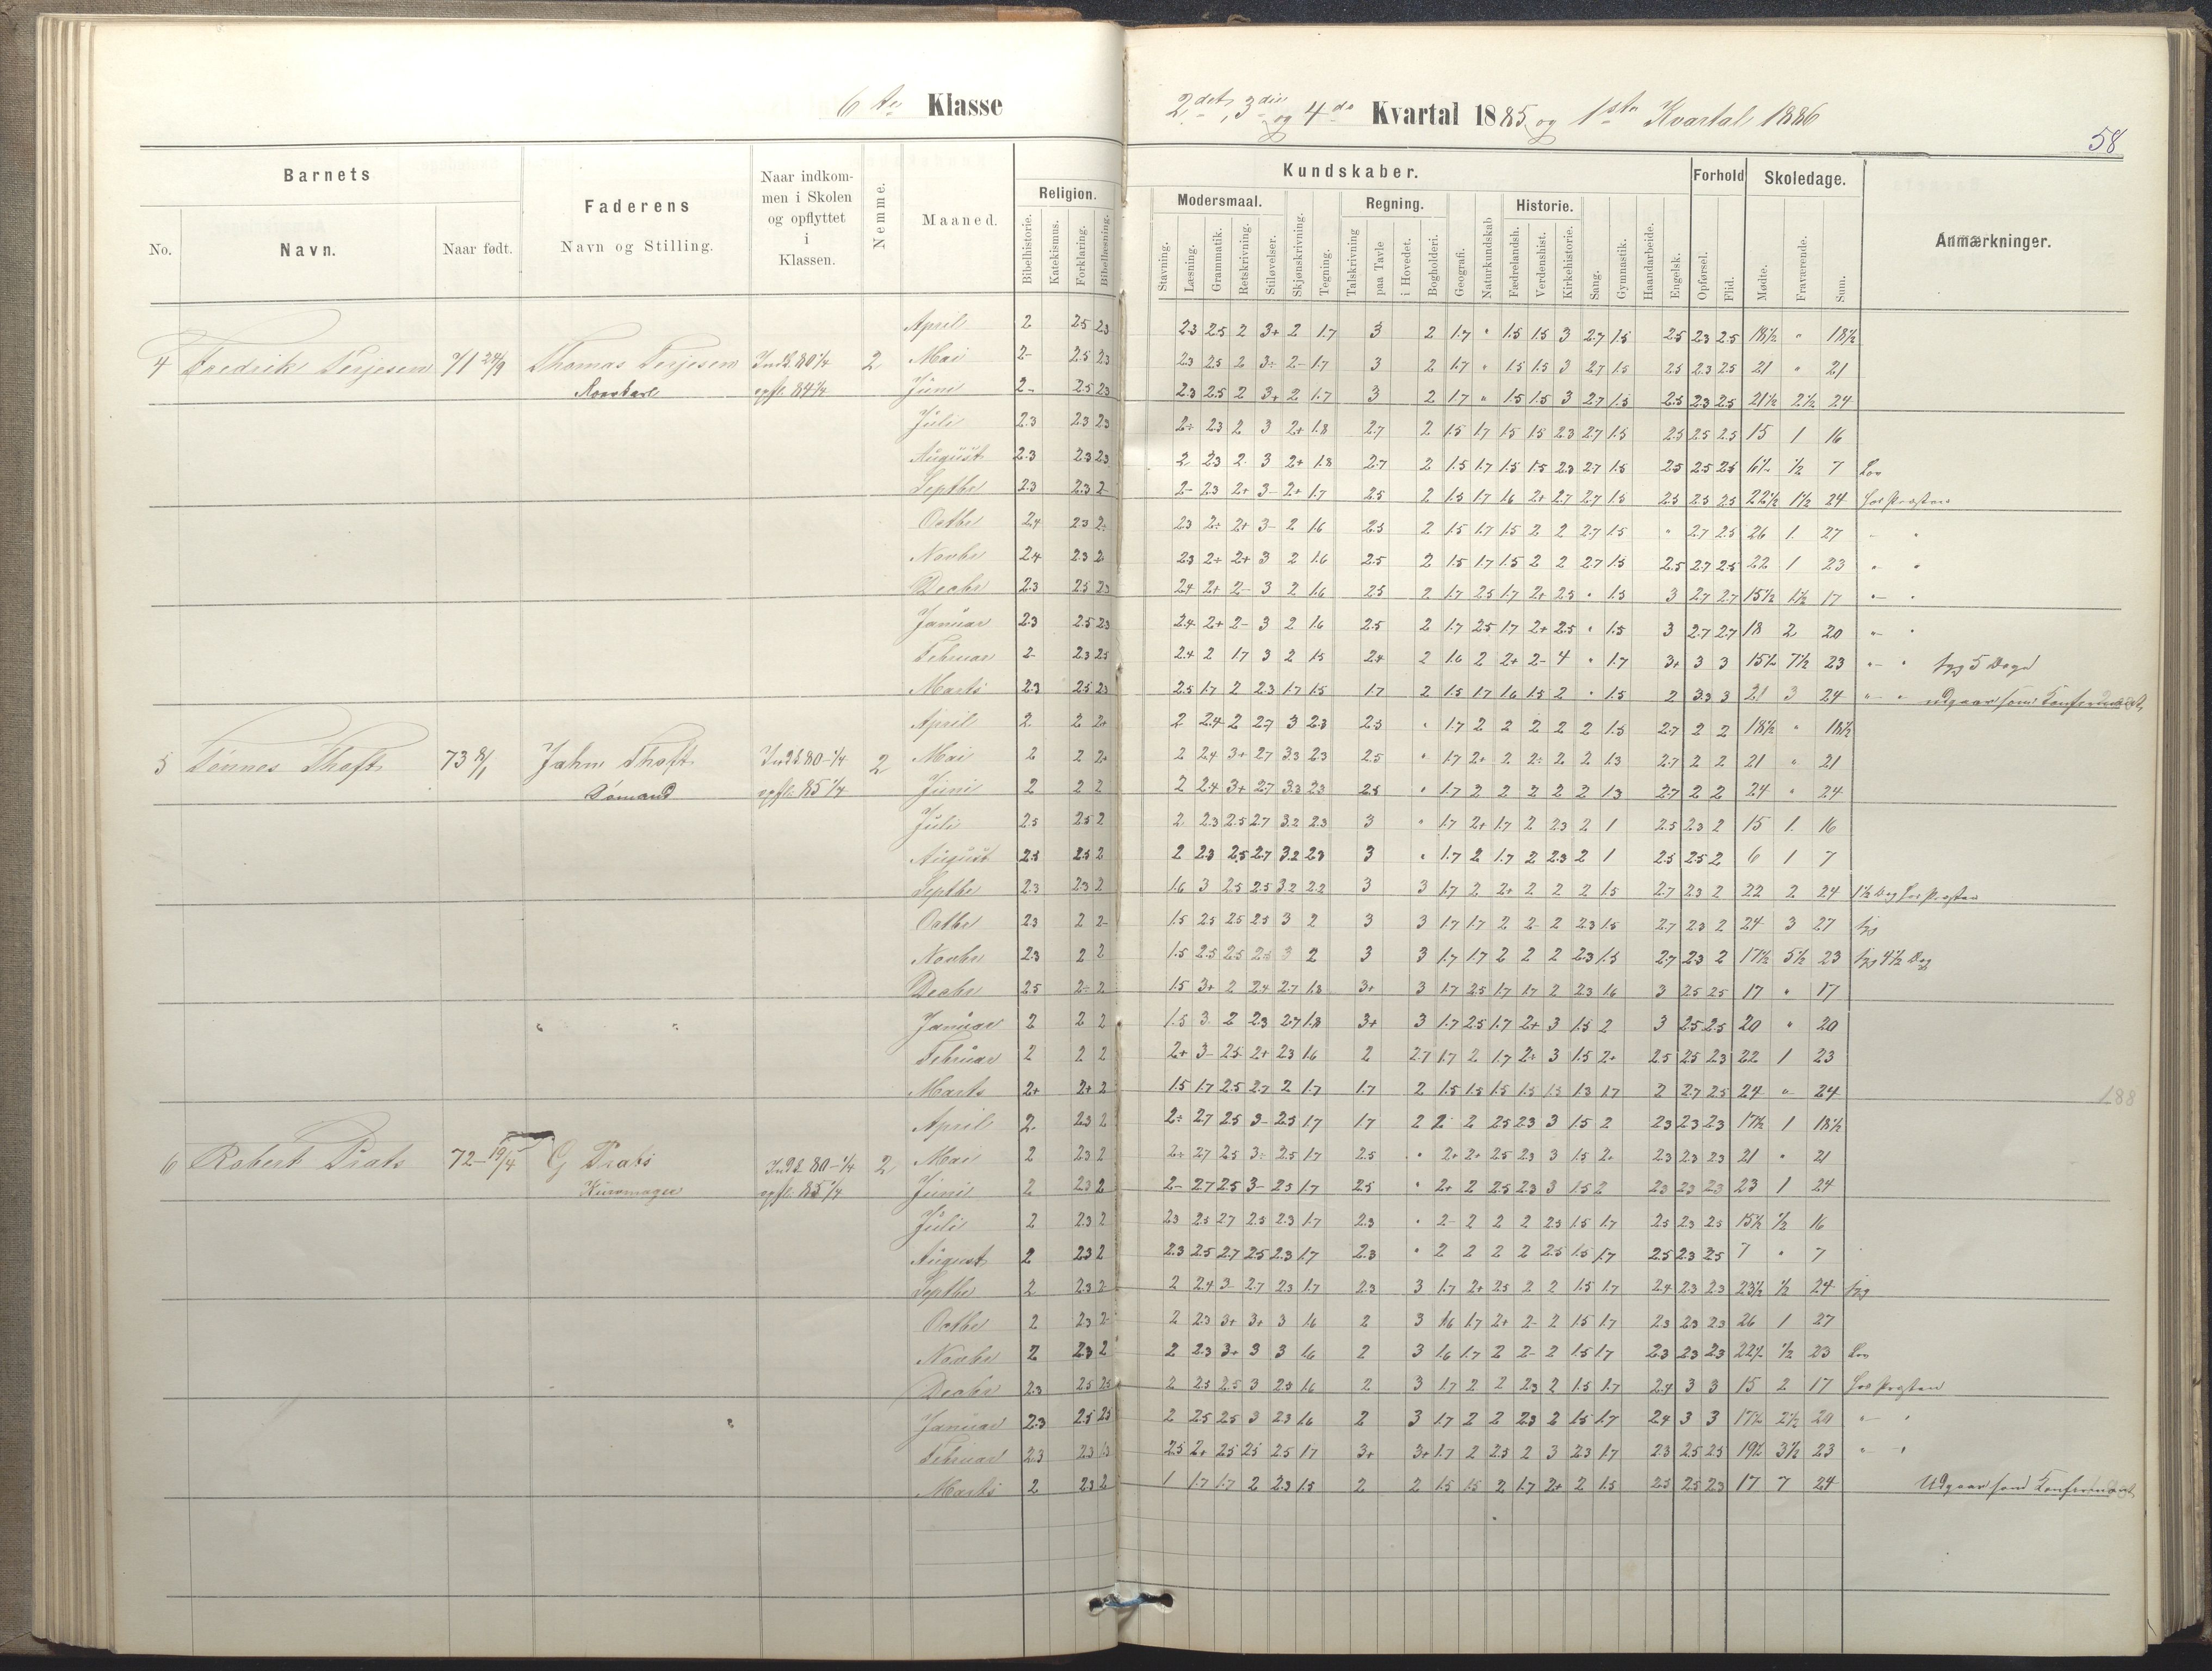 6te Klasse
2det, 3die og 4de Kvartal 1885 og 1ste Kvartal 1886
58
Barnets
Faderens
Naar indkommen i Skolen og opflyttet i Klassen.
Nemme.
Maaned.
Religion.
Kundskaber.
Forhold
Skoledage.
Anmærkninger.
No.
Navn.
Naar født.
Navn og Stilling.
Bibelhistorie.
Katekismus.
Forklaring.
Bibellæsning.
Modersmaal.
Regning.
Historie.
Stavning.
Læsning.
Grammatik.
Retskrivning.
Stiløvelser.
Skjønskrivning.
Tegning.
Talskrivning
paa Tavle
i Hovedet.
Bogholderi.
Geografi.
Naturkundskab
Fædrelandsh.
Verdenshist.
Kirkehistorie.
Sang.
Gymnastik.
Haandarbeide.
Engelsk.
Opførsel.
Flid.
Mødte.
Fraværende.
Sum.
April 2 2.5 2.3 2.3 2.5 2 3+ 2 1.7 3 2 1.7 " 1.5 1.5 3 2.7 1.5 2.5 2.3 2.5 18½ " 18½
4 Fredrik Terjesen 71 24/9 Thomas Terjesen Indk. 80 1/4 2 Mai 2- 2.5 2.3 2.3 2.5 2 3÷ 2- 1.7 3 2 1.7 " 1.5 1.5 3 2.7 1.5 2.5 2.3 2.5 21 " 21
opfl. 84 1/4 Juni 2- 2.5 2.3 2.3 2.5 2 3+ 2 1.7 3 2 1.7 " 1.5 1.5 3 2.7 1.5 2.5 2.3 2.5 21½ 2½ 24
Juli 2.3 2.3 2.3 2÷ 2.3 2 3 2+ 1.8 2.7 2 1.5 1.7 1.5 1.5 2.3 2.7 1.5 2.5 2.5 2.5 15 1 16
August 2.3 2.3 2.3 2 2.3 2 3 2+ 1.8 2.7 2 1.5 1.7 1.5 1.5 2.3 2.7 1.5 2.5 2.5 2.5 6½ ½ 7
Septbr 2.3 2.3 2- 2- 2.3 2+ 3- 2+ 1.7 2.5 2 1.5 1.7 1.6 2+ 2.7 2.7 1.5 2.5 2.5 2.5 22½ 1½ 24 hos Presten
Octbr 2.4 2.3 2÷ 2.3 2÷ 2+ 3- 2 1.6 2.5 2 1.5 1.7 1.5 2 2 2.7 1.5 " 2.7 2.5 26 1 27 " "
Novbr 2.4 2.3 2 2.3 2+ 2+ 3 2 1.6 2.5 2 1.5 1.7 1.5 2 2 2.7 1.5 2.5 2.7 2.5 22 1 23 " "
Decbr 2.3 2.5 2.3 2.4 2+ 2- 3 2 1.6 2.5 2 1.7 2.5 1.7 2+ 2.5 " 1.5 3 2.7 2.7 15½ 1½ 17 " "
Januar 2.3 2.5 2.3 2.4 2+ 2- 3 2 1.6 2.5 2 1.7 2.5 1.7 2+ 2.5 " 1.5 3 2.7 2.7 18 2 20 " "
Februar 2- 2.3 2.5 2.4 2 1.7 3 2 1.5 2.4 2 1.6 2 2+ 2- 4 " 1.7 3+ 3 3 15½ 7½ 23 " " syg 5 Dage
Marts 2.3 2.5 2.3 2.5 1.7 2 2.3 1.7 1.5 1.7 2 1.5 1.7 1.6 1.5 2 " 1.5 2 3.3 3 21 3 24 " " udgaar som Konfirmant
April 2 2 2+ 2 2.4 2 2.7 3 2.3 2.5 " 1.7 2 2 2 2 2 1.5 2.7 2 2 18½ " 18½
5 Tønnes Thoft 73 8/1 John Thoft Indk. 80 - 1/4 2 Mai 2 2 2+ 2 2.4 3+ 2.7 3.3 2.3 2.5 " 1.7 2+ 2 2÷ 2 2 1.3 2.7 2 2 21 " 21
Sømand opfl. 85 1/4 Juni 2 2 2 2 2.4 3+ 2.7 3.3 2.3 2.5 " 1.7 2 2 2 2 2 1.3 2.7 2 2 24 " 24
Juli 2.5 2.5 2 2 2.3 2.5 2.7 3.2 2.3 3 " 1.7 2+ 1.7 2 2.3 2 1 2.5 2.3 2 15 1 16
August 2.5 2.5 2 2 2.3 2.5 2.7 3.2 2.3 3 " 1.7 2 1.7 2 2.3 2 1 2.5 2.5 2 6 1 7
Septbr 2.3 2.3 2 1.6 3 2.5 2.5 3.2 2.2 3 3 1.7 2 2+ 2 2 2 1.5 2.7 2.3 2 22 2 24 1½ Dag hos Presten
Octbr 2.3 2 2- 1.5 2.5 2.5 2.5 3 2 3 3 1.7 1.7 2 2- 2 2.3 1.5 2.7 2.3 2 24 3 27 syg
Novbr 2.3 2 2 1.5 2.5 2.5 2.5 3 2 3 3 1.7 1.7 2 2 2 2.3 1.5 2.7 2.3 2 17½ 5½ 23 syg 4½ Dag
Decbr 2.5 2- 2 1.5 3+ 2 2.4 2.7 1.8 3+ 3 1.7 2.5 1.7 1.7 2 2.3 1.6 3 2.5 2.5 17 " 17
Januar 2 2 2 1.5 3 2 2.3 2.7 1.8 3+ 3 1.7 2.5 1.7 2+ 3 1.5 2 3 2.5 2.5 20 " 20
Februar 2 2 2 2+ 3- 2.5 2+ 2.3 1.6 2 2.7 1.7 2 1.7 2÷ 3 1.5 2+ 2.5 2.5 2.3 22 1 23
Marts 2+ 2+ 2 1.5 1.7 2.5 2.7 2 1.7 1.7 2 1.5 1.5 1.5 1.5 1.3 1.3 1.7 2 2.7 2.5 24 " 24
188
April 2 2.3 2 2÷ 2.7 2.5 3- 2.5 1.7 1.7 2 2 2 2.5 2.3 3 1.5 2 2.3 2.3 2.3 17½ 1 18½
6 Robert Prats 72 - 19/4 G Prats Indk. 80 - 1/4 2 Mai 2 2.3 2 2÷ 2.7 2.5 3÷ 2.5 1.7 2.5 " 2+ 2+ 2.5 2.3 3 1.5 2+ 2.3 2.3 2.3 21 " 21
opfl. 85 1/4 Juni 2 2.3 2 2- 2.7 2.5 3- 2.5 1.7 2.5 " 2+ 2 2.5 2.3 3 1.5 2 2.3 2.3 2.3 23 1 24
Juli 2 2.3 2 2.3 2.5 2.7 2.5 2.3 1.7 2.3 " 2- 2 2 2 2.5 1.5 1.7 2.5 2.3 2.5 15½ ½ 16
August 2 2.3 2 2.3 2.5 2.7 2.5 2.3 1.7 2.3 " 2 2 2 2 2.5 1.5 1.7 2.5 2.3 2.5 7 " 7
Septbr 2 2.3 2- 2 2.4 3- 2.7 2.3 1.7 2.3 3 1.7 2+ 2.5 2 2 1.5 1.7 2.4 2.3 2.3 23½ ½ 24 syg
Octbr 2 2.3 2- 2 2.3 3+ 3+ 3 1.6 2 3 1.6 1.7 2+ 2- 2 1.5 1.7 2.3 2.3 2.3 26 1 27
Novbr 2 2.3 2 2 2.3 3+ 3 3 1.6 2 3 1.6 1.7 2 2- 2 1.5 1.7 2.3 2.3 2.3 22½ ½ 23
Decbr 2.3 2.5 2.5 2 2.5 2.5 3 2.3 1.6 2 3 1.7 2 2 2.3 2 1.5 1.7 2.4 3 3 15 2 17 hos Presten
Januar 2.3 2.5 2.5 2 2.5 2.5 3 2.3 1.6 2 3 1.7 2 2 2.3 2 1.5 1.7 2.4 3 3 17½ 2½ 20 " "
Februar 2.3 2.3 2.5 2+ 2.5 2.5 2.5 1.7 3+ 3+ 1.7 2 2.5 2 3 2.3 1.7 2.3 2.5 2.5 19½ 3½ 23 " "
Marts 2 2.3 2 1 1.7 1.7 2 2.3 1.5 2 2 1.5 1.5 2 1.7 2+ 2 1.5 2.5 2.5 2.3 17 7 24 Udgaar som Konfirmant